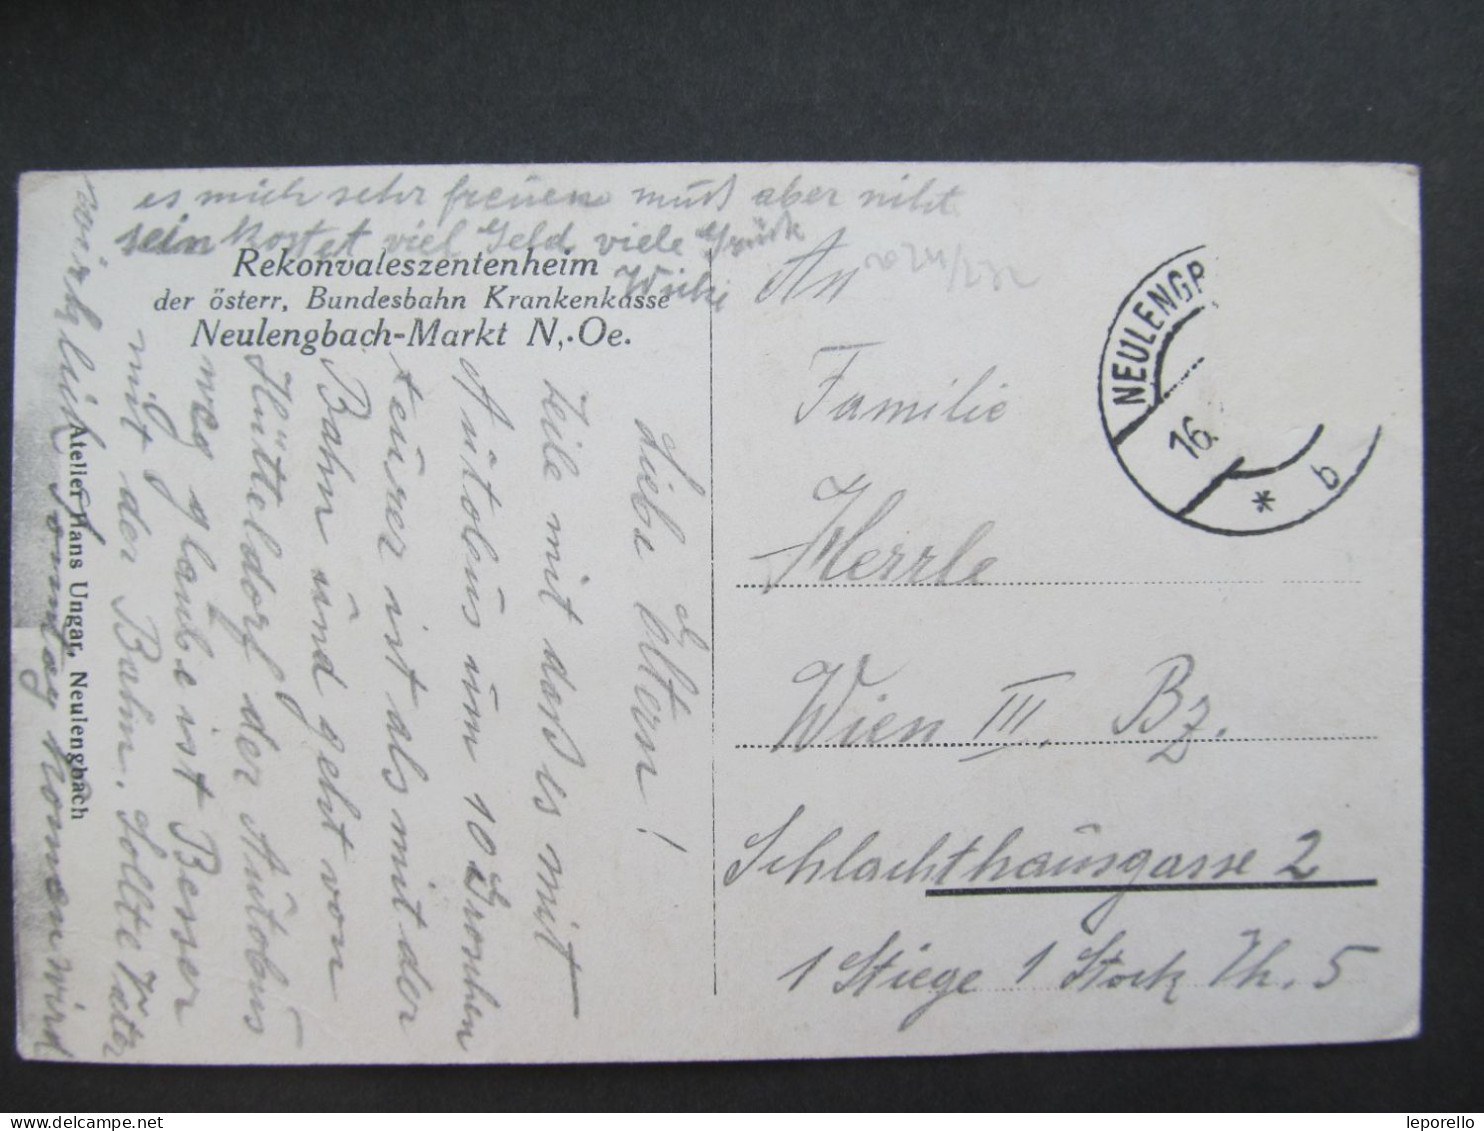 Rekonvaleszentenheim
der österr, Bundesbahn Krankenkasse
Neulengbach-Markt N,-Oe.
Liebe Eltern!
teile mit daß es mit
Autobus um 10 Groschen
teurer ist als mit der
Bahn und geht von
Hütteldorf der Autobus
weg glaube ist Besser
mit der Bahn. Sollte Vater
wirklich Sonntag kommen wird
es mich sehr freuen muß aber niht
sein kostet viel Geld viele Grüße
An
Familie
Herrle
Wien III. Bz.
Schlachthausgasse 2
1 Stiege 1 Stock Th. 5
NEULENGB
16.
* b
Atelier Hans Ungar, Neulengbach
leporello